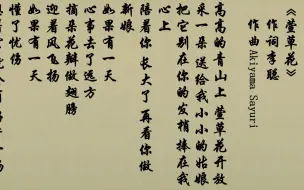 《萱草花》
作词 李聪
作曲 Akiyama Sayuri
高高的青山上 萱草花开放
采一朵 送给我 小小的姑娘
把它别在你的发梢 捧在我
心上
陪着你长大了 再看你做
新娘
如果有一天
心事去了远方
摘朵花瓣做翅膀
迎着风飞扬
如果有一天
懂了忧伤